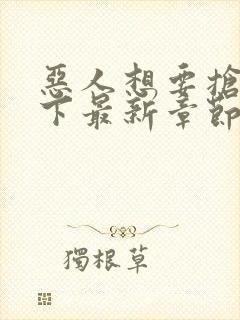 惡人想要搶
下最新章節
獨根草